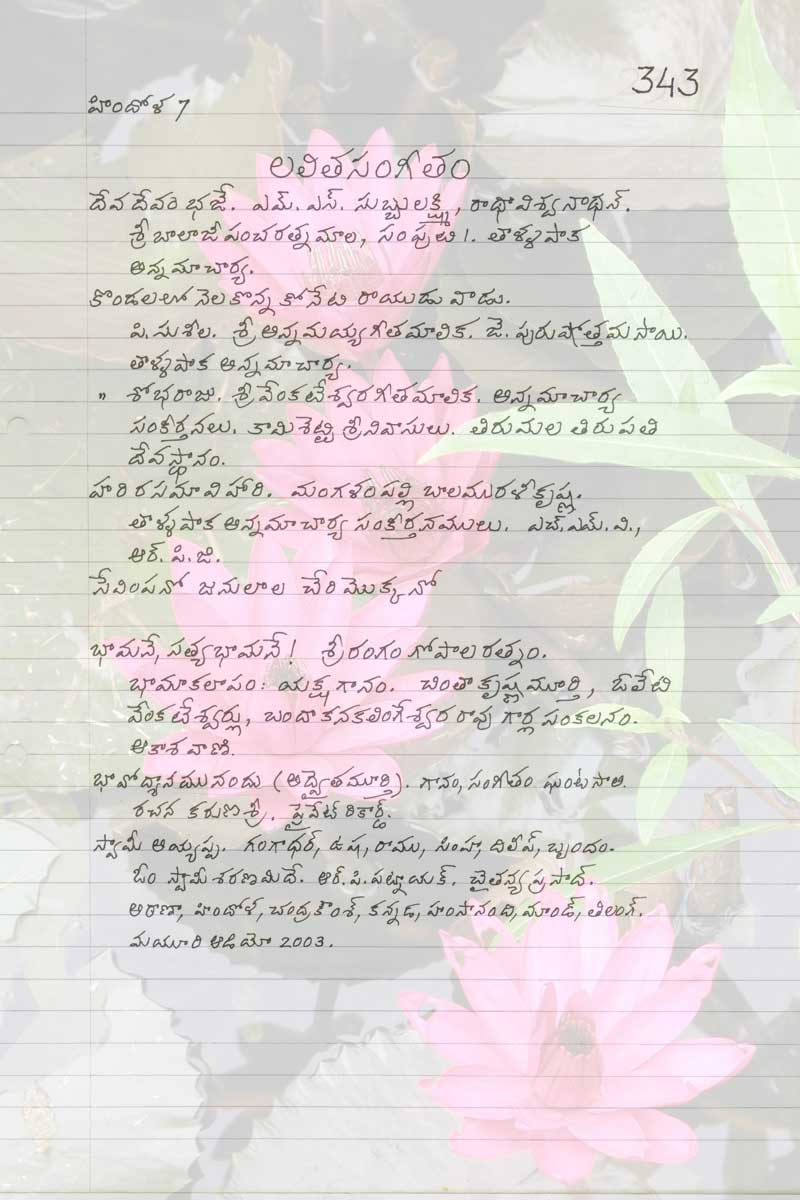 343
హిందోళ 7
లలితసంగీతం
దేవదేవం భజే. ఎమ్. ఎస్. సుబ్బులక్ష్మి, రాధావిశ్వనాథన్.
శ్రీ బాలాజీ పంచరత్నమాల, సంపుటి 1. తాళ్ళపాక
అన్నమాచార్య.
కొండలలో నెలకొన్న కోనేటి రాయుడు వాడు.
పి. సుశీల. శ్రీ అన్నమయ్య గీతమాలిక. జే. పురుషోత్తమసాయి.
తాళ్ళపాక అన్నమాచార్య.
" శోభరాజు. శ్రీ వేంకటేశ్వర గీతమాలిక. అన్నమాచార్య
సంకీర్తనలు. కామిశెట్టి శ్రీనివాసులు. తిరుమల తిరుపతి
దేవస్థానం.
హరి రసమా విహారి. మంగళంపల్లి బాలమురళీకృష్ణ.
తాళ్ళపాక అన్నమాచార్య సంకీర్తనములు. ఎచ్. ఎమ్. వి.,
ఆర్. పి. జి.
సేవింపనో జనులాల చేరి మొక్కనో
భామనే, సత్యభామనే! శ్రీరంగం గోపాలరత్నం.
భామాకలాపం: యక్షగానం. చింతా కృష్ణమూర్తి, ఓలేటి
వేంకటేశ్వర్లు, బందా కనకలింగేశ్వరరావు గార్ల సంకలనం.
ఆకాశవాణి.
భావోద్యానమునందు (అద్వైతమూర్తి). గానం, సంగీతం ఘంటసాల.
రచన కరుణశ్రీ. ప్రైవేట్ రికార్డ్.
స్వామీ అయ్యప్ప. గంగాధర్, ఉష, రాము, సింహ, దిలీప్, బృందం.
ఓం స్వామీ శరణమిదే. ఆర్. పి. పట్నాయక్. చైతన్య ప్రసాద్.
అఠాణా, హిందోళ, చంద్రకౌంశ్, కన్నడ, హంసానంది, మాండ్, తిలంగ్.
మయూరి ఆడియో 2003.